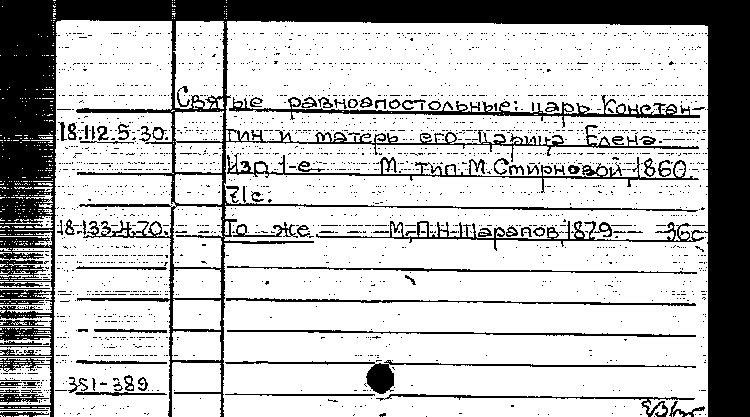 Святые равноапостольные: царь Констан-
18.112.5.30. тин и матерь его, царица Елена.
Изд. 1-е. М., тип. М. Смирновой, 1860.
71с.
18.133.4.70. То же М., П.Н. Шарапов, 1879. 36с
351-389